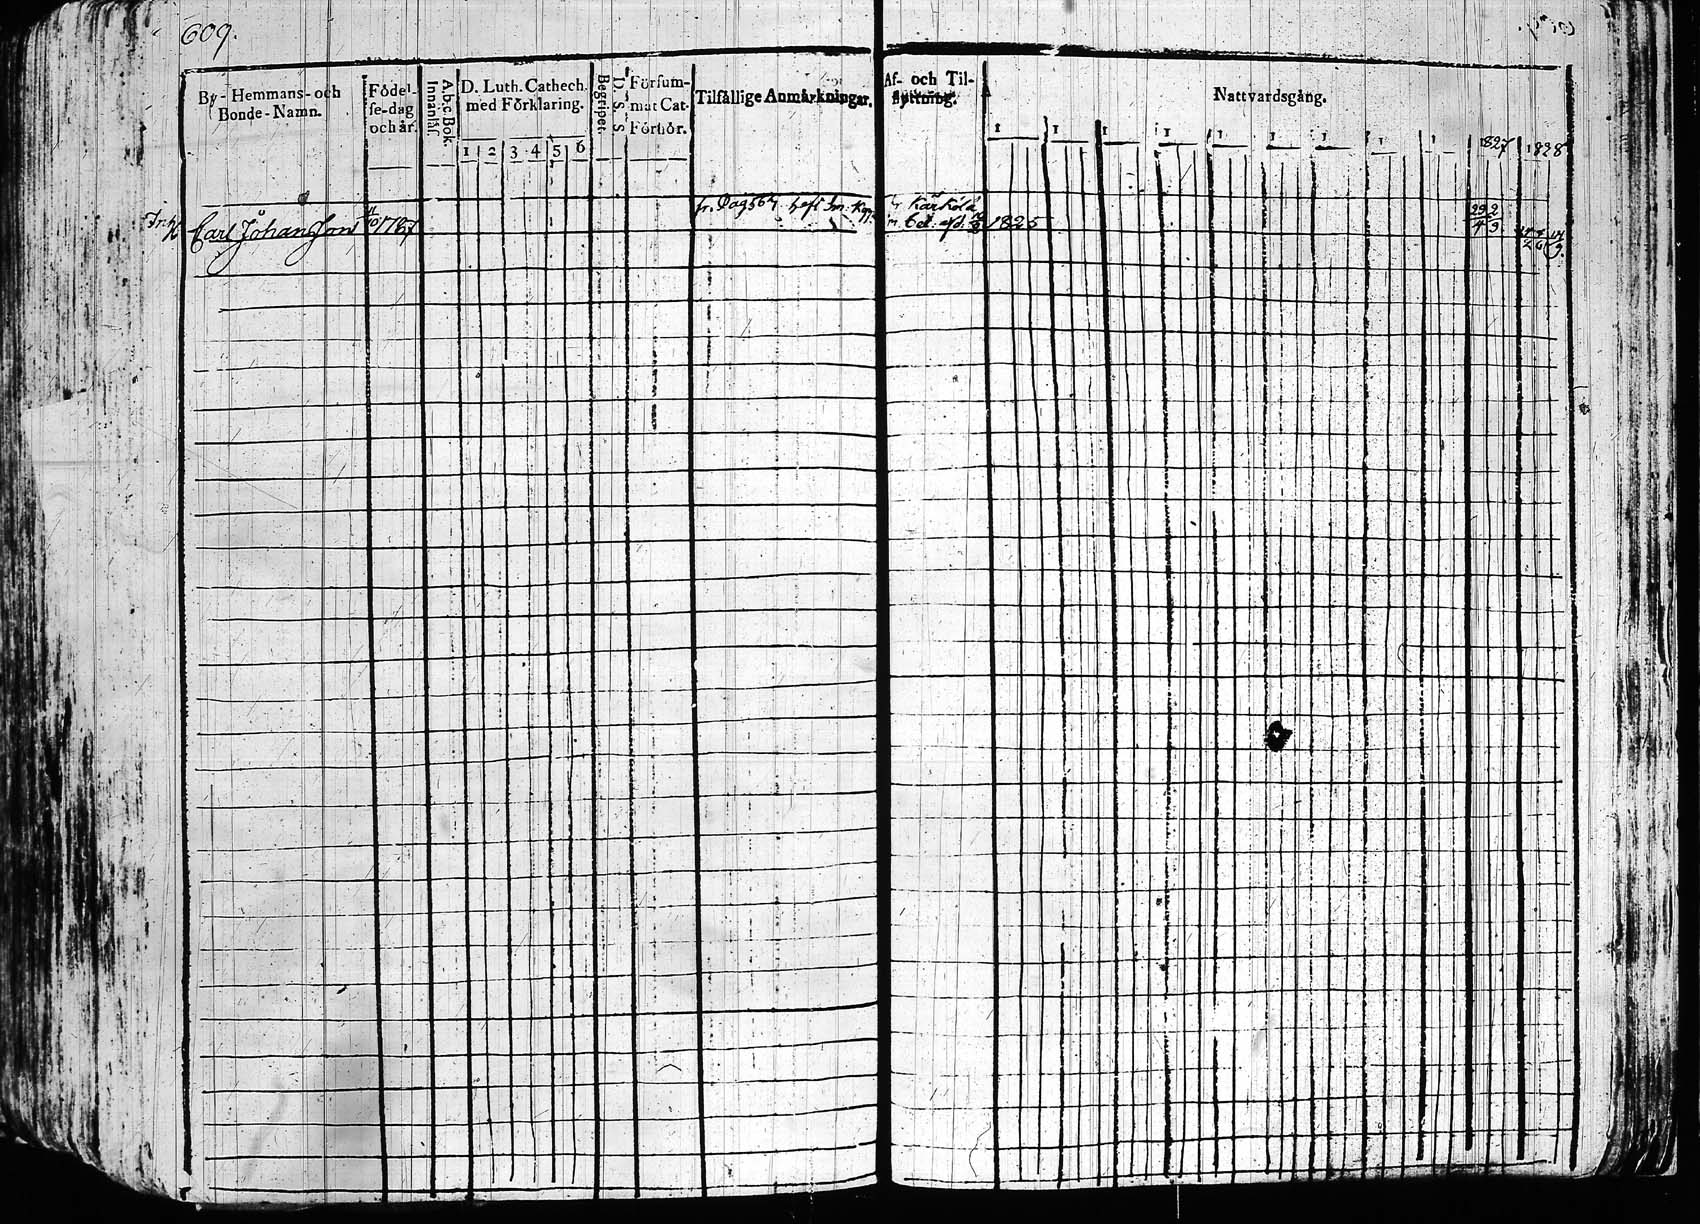 609.
By- Hemmans- och
Bonde-Namn.
Födel-
se-dag
och år.
A.b.c. Bok.
Innanläs.
D. Luth. Cathech.
med Förklaring.
1 2 3 4 5 6
Begripet.
D. S. S
Försum-
mat Cat.
Förhör.
Tilfällige Anmärkningar.
Af- och Til-
flyttning.
Nattvardsgång.
1 1 1 1 1 1 1 1 1 1827 1828
Carl Johansson
fr. Pag 567
Kärkölä
1825